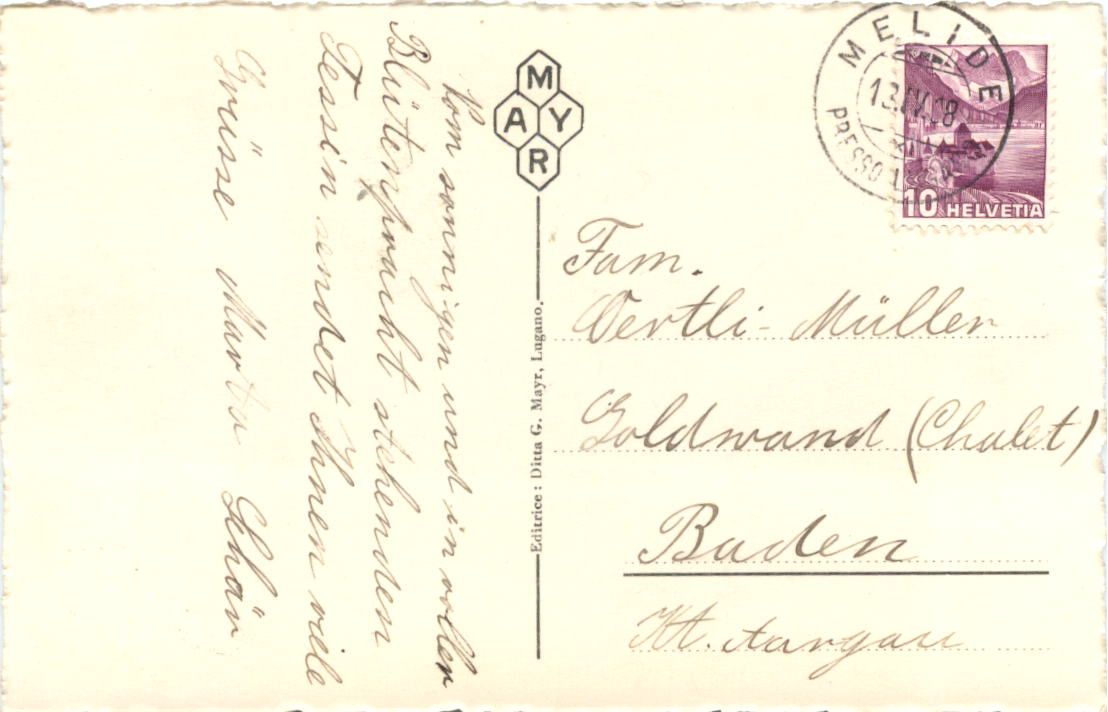 Vom sonnigen und in voller
Blütenpracht stehenden
Tessin sendet Ihnen viele
Grüsse Marta Schär
MAYR
Editrice: Ditta G. Mayr, Lugano.
MELIDE
13.IV.38
PRESSO
10 HELVETIA
Fam.
Oertli-Müller
Goldwand (Chalet)
Baden
Kt. Aargau